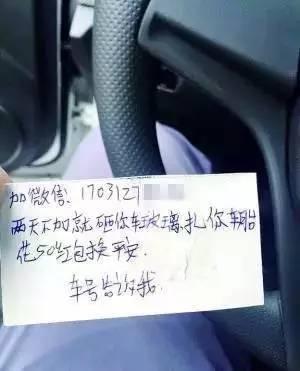 加微信: 1703127
两天不加就砸你车玻璃、扎你车胎
花50红包换平安.
车号告诉我.